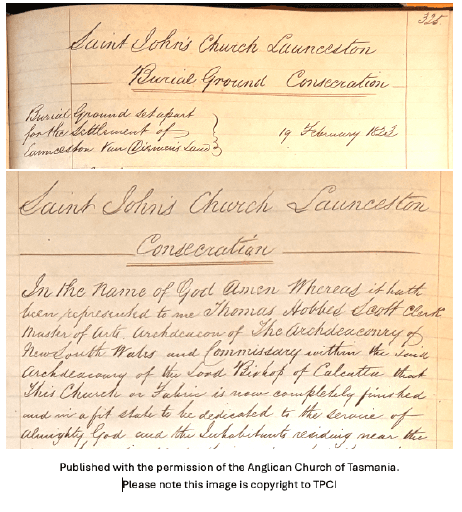 325
Saint John's Church Launceston
Burial Ground Consecration
Burial Ground set apart
for the Settlement of
Launceston Van Diemens Land
19 February 1823
Saint John's Church Launceston
Consecration
In the Name of God Amen Whereas it hath
been represented to me Thomas Hobbes Scott Clerk
Master of Arts Archdeacon of The Archdeaconry of
New South Wales and Commissary within the said
Archdeaconry of the Lord Bishop of Calcutta that
This Church or Fabric is now completely finished
and in a fit state to be dedicated to the service of
Almighty God and the Inhabitants residing near the
Published with the permission of the Anglican Church of Tasmania.
Please note this image is copyright to TPCI